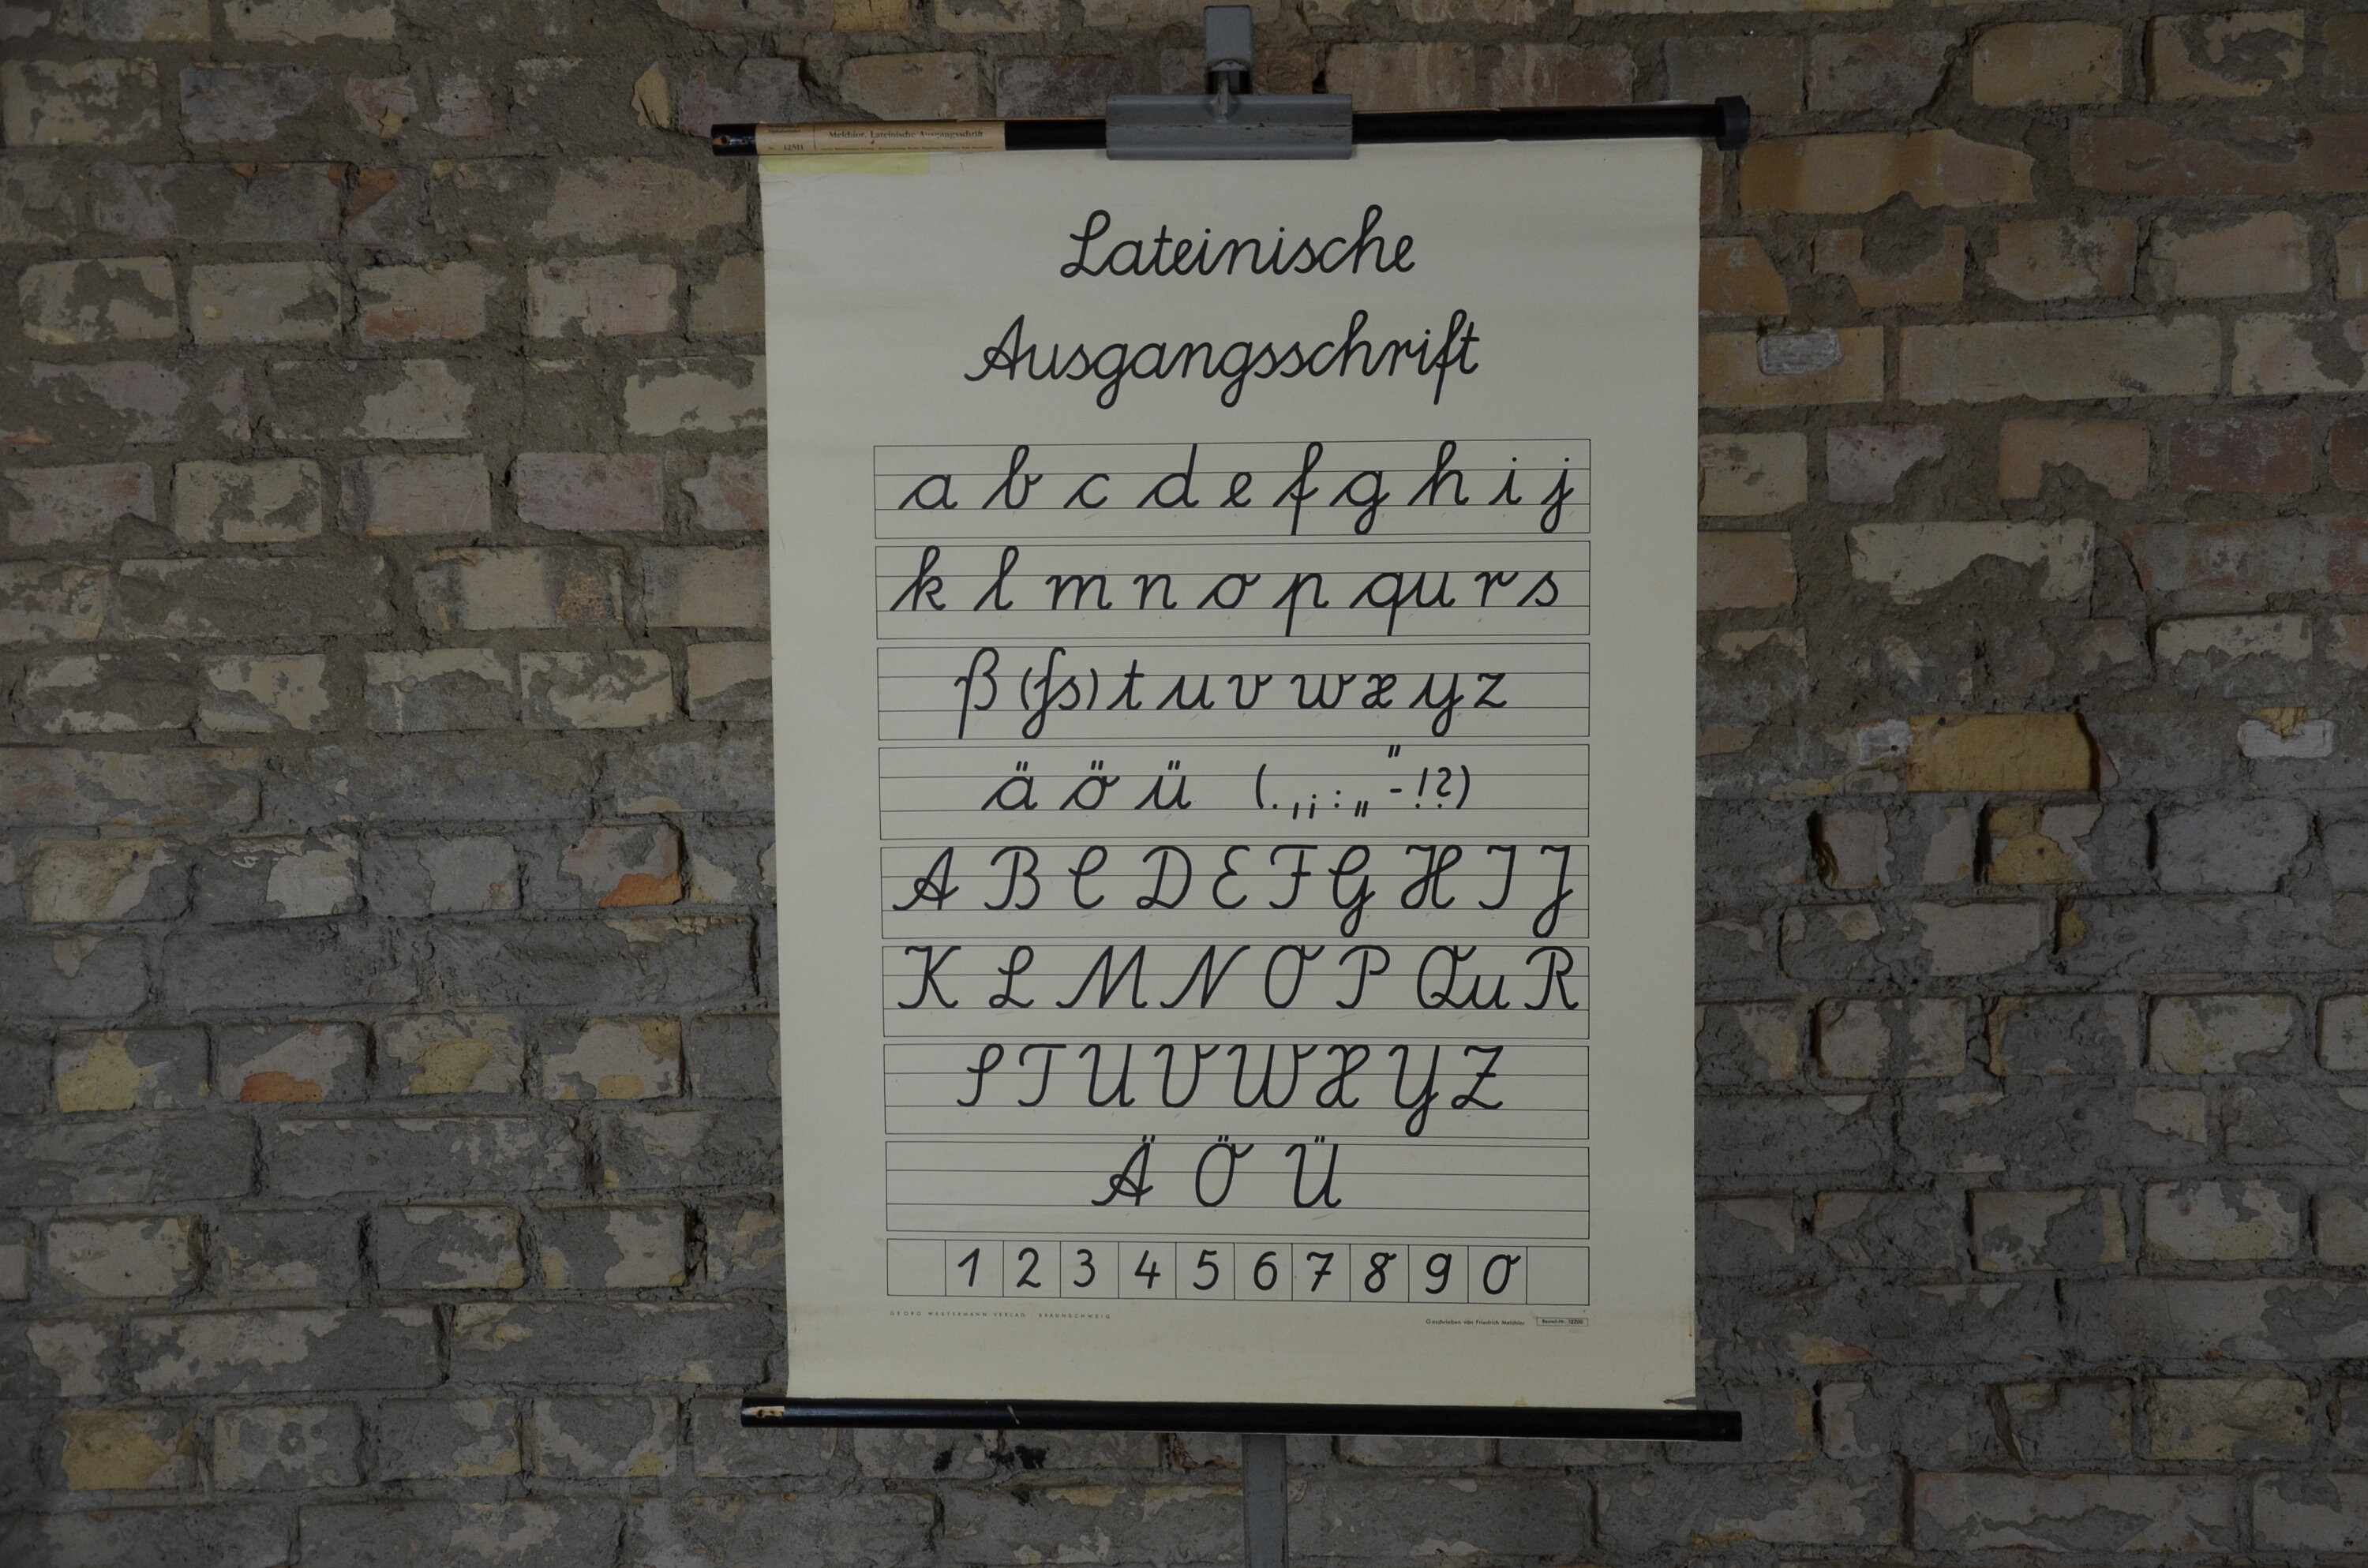 Melchior, Lateinische Ausgangsschrift
Lateinische
Ausgangsschrift
a b c d e f g h i j
k l m n o p qu r s
ß (ſs) t u v w x y z
ä ö ü (. , ; : „ " - ! ?)
A B C D E F G H I J
K L M N O P Qu R
S T U V W X Y Z
Ä Ö Ü
1 2 3 4 5 6 7 8 9 0
GEORG WESTERMANN VERLAG · BRAUNSCHWEIG
Geschrieben von Friedrich Melchior